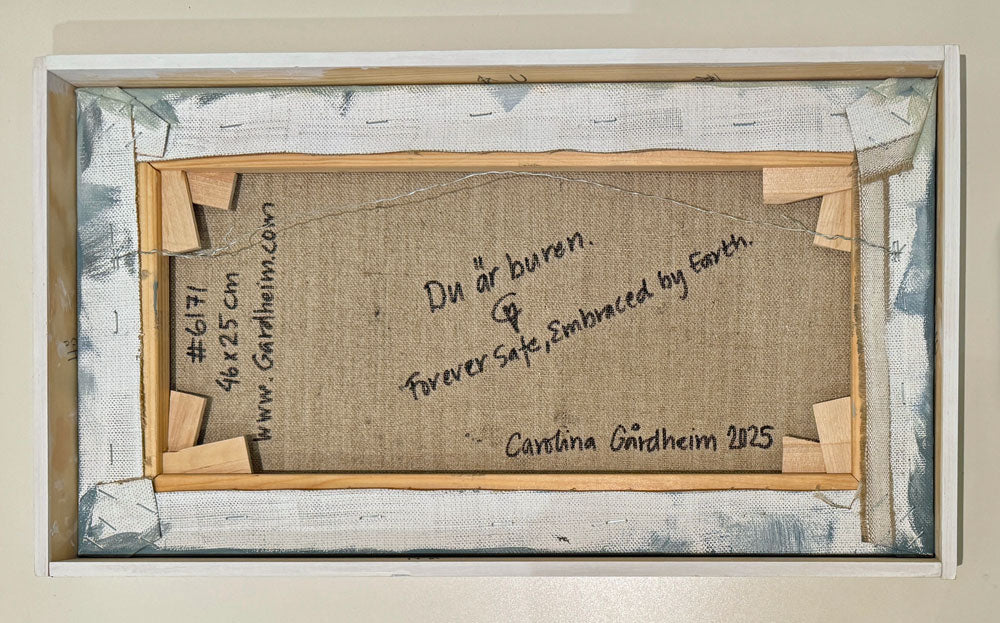 Du är buren.
Forever Safe, Embraced by Earth.
Carolina Gårdheim 2025
#6171
46 x 25 cm
www.Gardheim.com